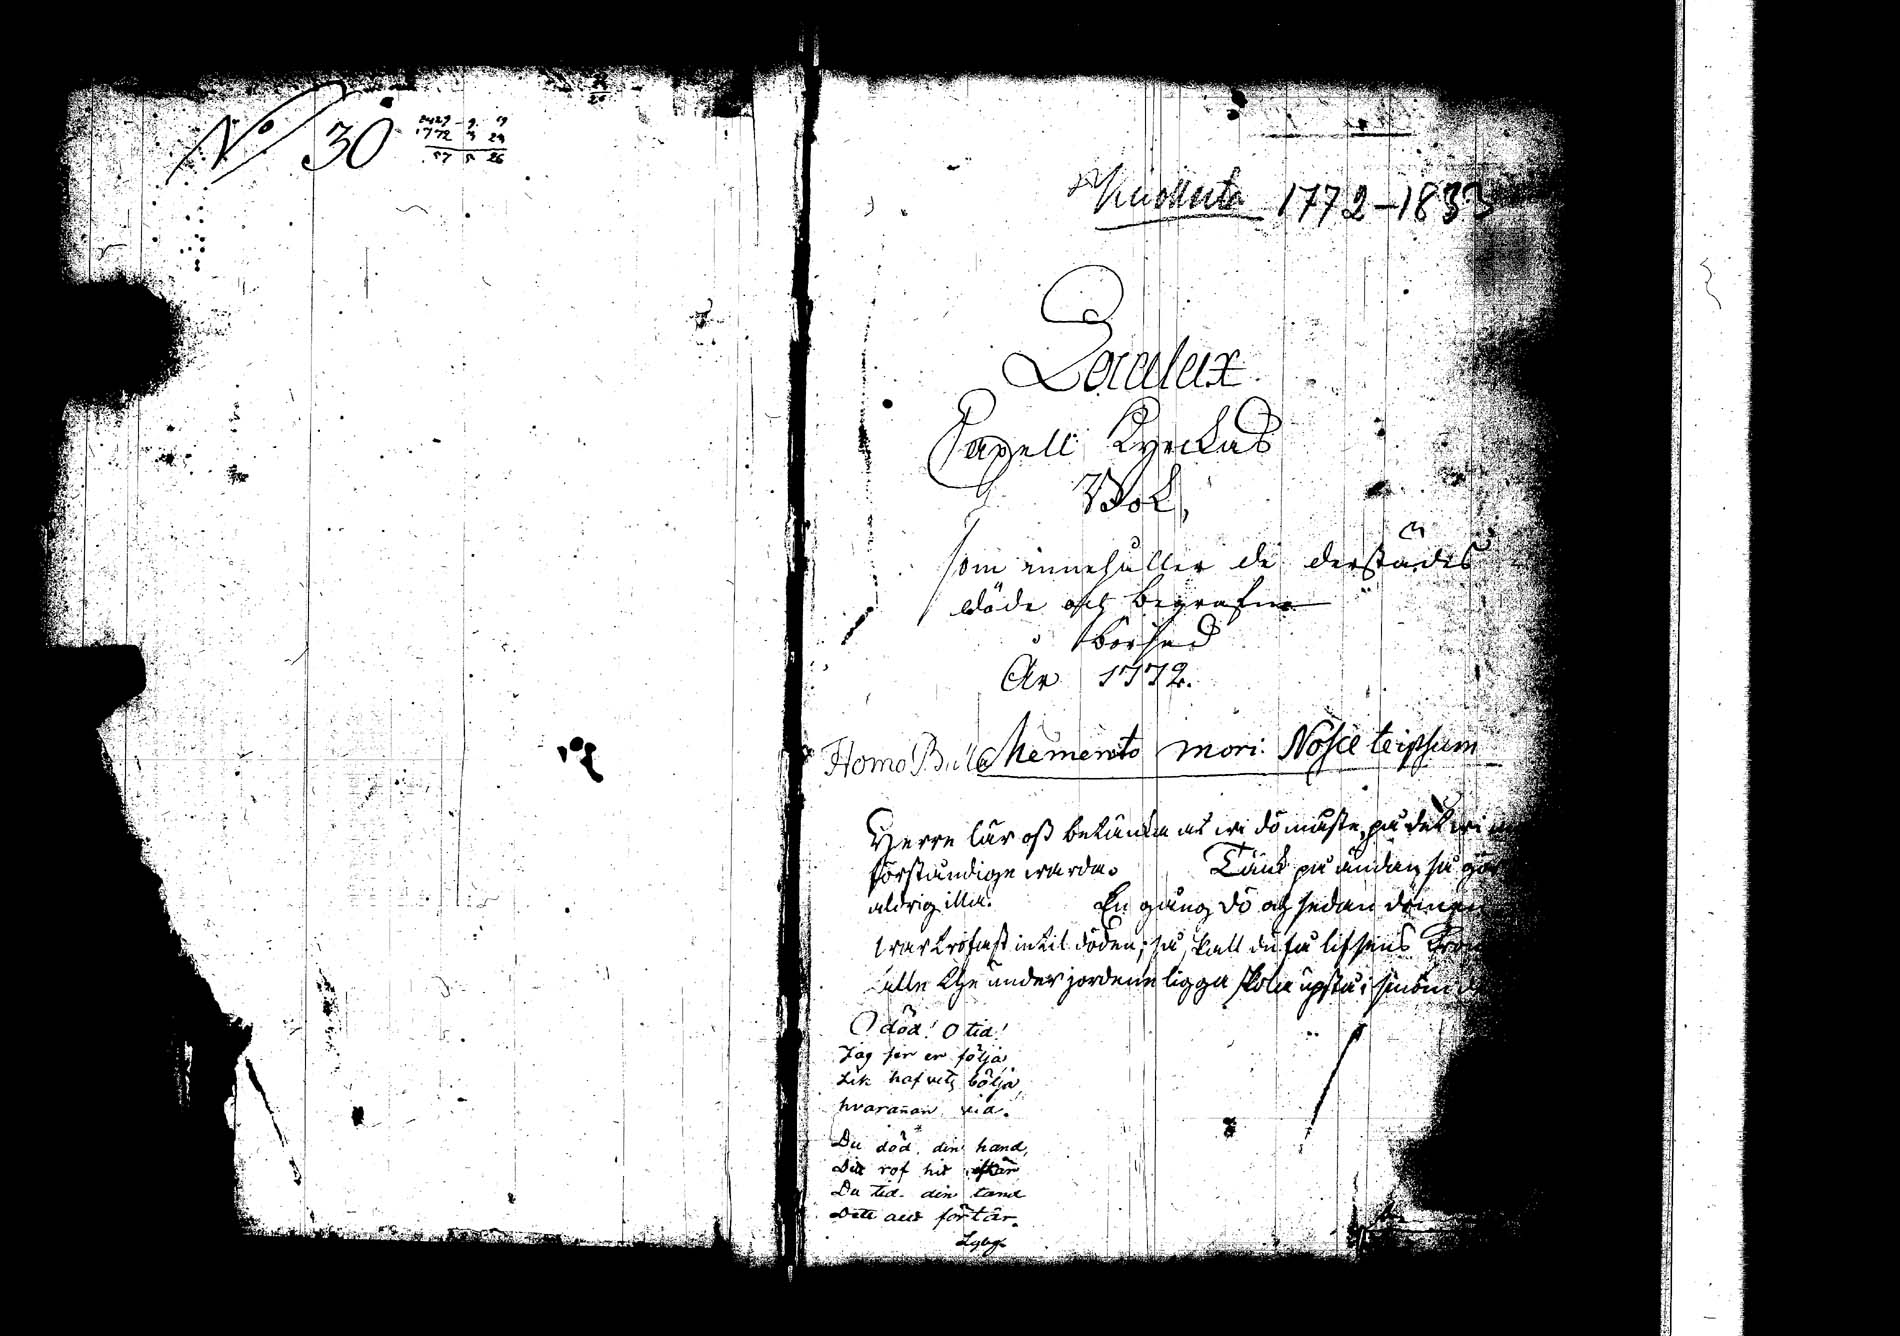 No 30
1772 3 24
57 5 26
Kuolleita 1772–1833
Localax
Capell Kyrckas
Bok,
som innehåller de derstädes
döde och begrafne
börjad
År 1772.
Homo Bulla Memento mori: Nosce teipsum
Herre lär oss betänka at wi dö måste, på det wi
förståndige warda. Tänk på ändan så gör
aldrig illa. En gång dö och sedan domen
war trofast intil döden; så skall du få lifsens Kron
alle the under jordene ligga skola upstå;
O död! O tid!
Jag ser er följa
Lik hafvets bölja
hvarannan vid.
Du död, din hand,
Ditt rof hit
Du tid. din tand
Dett allt förtär.